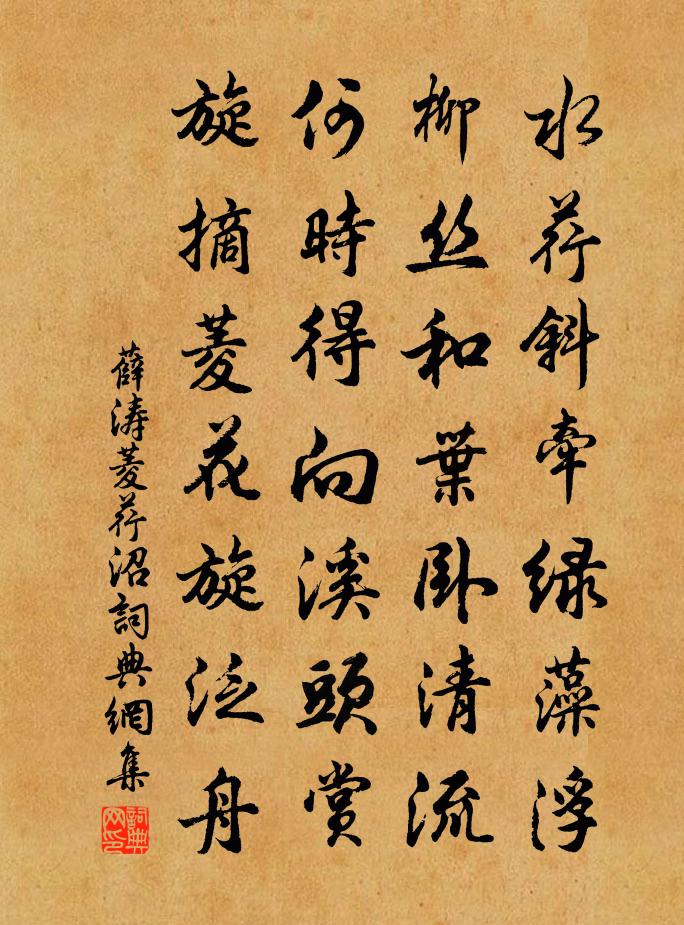 水荇斜牽绿藻浮
柳丝和葉卧清流
何時得向溪頭賞
旋摘菱花旋泛舟
薛涛菱荇沼詞典網集
詞典网印